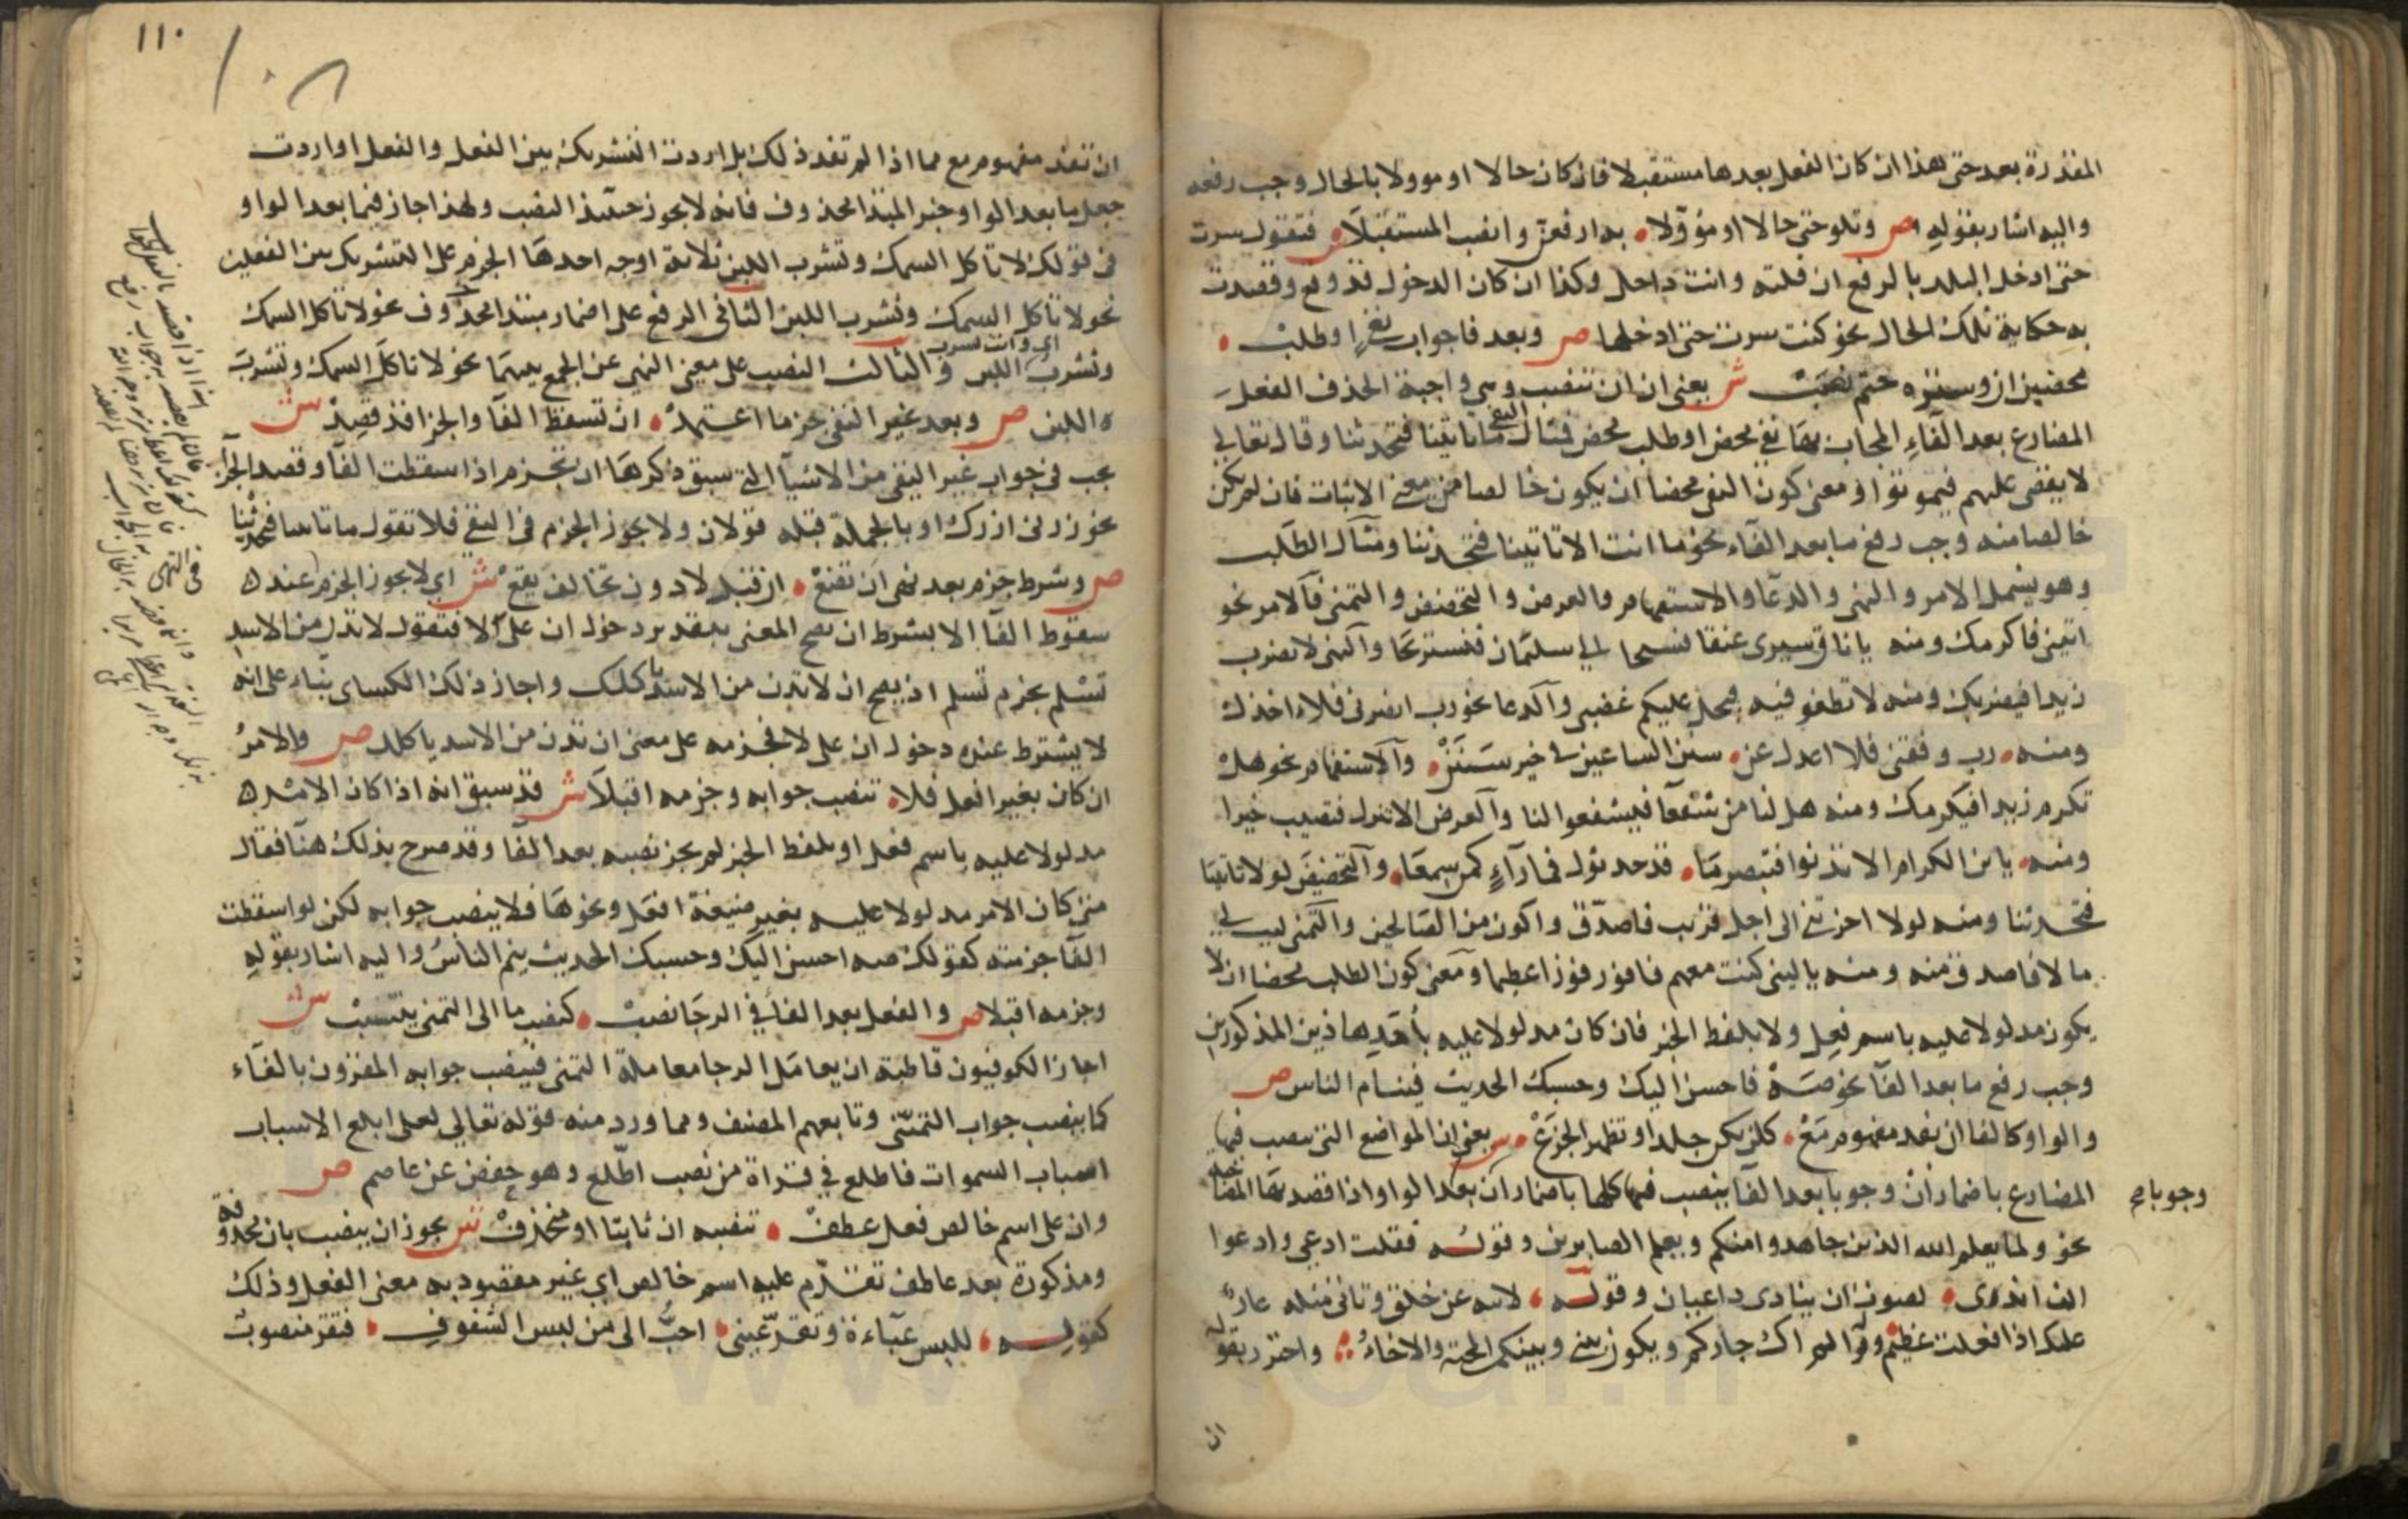 المقدرة بعد حتى هذا ان كان الفعل بعدها مستقبلا فان كان حالا او موولا بالحال وجب رفعه
واليه اشار بقوله ص وتلو حتى حالا او مؤوّلا به ارفعنّ وانصب المستقبلا ش فتقول سرت
حتى ادخل البلد بالرفع ان قلته وانت داخل وكذا ان كان الدخول قد وقع وقصدت
به حكاية تلك الحال نحو كنت سرت حتى ادخلها ص وبعد فا جواب نفي او طلب
محضين ان وستره حتم نصب ش يعني ان ان تنصب وهي واجبة الحذف الفعل
المضارع بعد الفاء المجاب بها نفي محض او طلب محض فمثال النفي ما تاتينا فتحدثنا وقال تعالى
لا يقضى عليهم فيموتوا ومعنى كون النفي محضا ان يكون خالصا من معنى الاثبات فان لم يكن
خالصا منه وجب رفع ما بعد الفاء نحو ما انت الا تاتينا فتحدثنا ومثال الطلب
وهو يشمل الامر والنهي والدعا والاستفهام والعرض والتحضيض والتمني فالامر نحو
اتيني فاكرمك ومنه يا ناق سيرى عنقا فسيحا الى سليمان فنستريحا والنهي لا تضرب
زيدا فيضربك ومنه لا تطغو فيه فيحل عليكم غضبى والدعا نحو رب انصرنى فلا اخذل
ومنه رب وفقني فلا اعدل عن سنن الساعين في خير سَنَنْ والاستفهام نحو هل
تكرم زيدا فيكرمك ومنه هل لنا من شفعآ فيشفعوا لنا والعرض الا تنزل فتصيب خيرا
ومنه يا بن الكرام الا تدنوا فتبصر ما قد حدثوك فما رآءٍ كمن سمعا والتحضيض لولا تاتينا
فتحدثنا ومنه لولا اخرتني الى اجل قريب فاصدّق واكون من الصالحين والتمني ليت لي
مالا فاصدق منه ومنه يا ليتني كنت معهم فافوز فوزا عظيما ومعنى كون الطلب محضا ان لا
يكون مدلولا عليه باسم فعل ولا بلفظ الخبر فان كان مدلولا عليه بأحد هاذين المذكورين
وجب رفع ما بعد الفا نحو صه فاحسن اليك وحسبك الحديث فينام الناس ص
والواو كالفا ان تفد مفهوم مع كلا تكن جلدا وتظهر الجزع ش يعني ان المواضع التي ينصب فيها
المضارع باضمار ان وجوبا بعد الفا ينصب فيها كلها باضمار ان بعد الواو اذا قصد بها المصاحبة
وجوبا صح
نحو ولما يعلم الله الذين جاهدوا منكم ويعلم الصابرين وقوله فقلت ادعي وادعوا
ان اندى لصوت ان ينادى داعيان وقوله لا تنه عن خلق وتاتى مثله عار
عليك اذا فعلت عظيم وقوله الم اك جاركم ويكون بيني وبينكم المحبة والاخاء واحترز بقوله
ان
١١٠
ان تفد مفهوم مع مما اذا لم تفد ذلك بل اردت التشريك بين الفعل والفعل او اردت
جعل ما بعد الواو خبر المبتدا محذوف فانه لا يجوز حينئذ النصب ولهذا جاز فيما بعد الواو
في قولك لا تاكل السمك وتشرب اللبن ثلاثة اوجه احدها الجزم على التشريك بين الفعلين
نحو لا تاكل السمك وتشرب اللبن الثانى الرفع على اضمار مبتدا محذوف نحو لا تاكل السمك
اى وانت تشرب
وتشربُ اللبن والثالث النصب على معنى النهي عن الجمع بينهما نحو لا تاكل السمك وتشربَ
اللبن ص وبعد غير النفي جزما اعتمد ان تسقط الفا والجزا قد قصد ش
يجب في جواب غير النفي من الاشيآ التي سبق ذكرها ان تجزم اذا اسقطت الفا وقصد الجزآ
نحو زرنى ازرك او بالجملة قبله قولان ولا يجوز الجزم في النفي فلا تقول ما تاتينا فتحدثنا
ص وشرط جزم بعد نهي ان تضع ان قبل لا دون تخالف يقع ش اى لا يجوز الجزم عند
سقوط الفا الا بشرط ان يصح المعنى بتقدير دخول ان على لا فتقول لا تدن من الاسد
تسلم بجزم تسلم اذ يصح ان لا تدن من الاسد ياكلك واجاز ذلك الكساى بناء على انه
لا يشترط عنده دخول ان على لا فجزمه على معنى ان تدن من الاسد ياكلك ص والامر
ان كان بغير افعل فلا تنصب جوابه وجزمه اقبلا ش قد سبق انه اذا كان الامر
مدلولا عليه باسم فعل او بلفظ الخبر لم يجز نصبه بعد الفا وقد صرح بذلك هنا فقال
متى كان الامر مدلولا عليه بغير صيغة افعل ونحوها فلا ينصب جوابه لكن لو اسقطت
الفا جزمته كقولك صه احسن اليك وحسبك الحديث ينم الناس واليه اشار بقوله
وجزمه اقبلا ص والفعل بعد الفاء في الرجا نصب كنصب ما الى التمني ينتسب ش
اجاز الكوفيون قاطبة ان يعامل الرجا معاملة التمني فينصب جوابه المقرون بالفاء
كما ينصب جواب التمني وتابعهم المصنف ومما ورد منه قوله تعالى لعلى ابلغ الاسباب
اسباب السموات فاطلع في قراة من نصب اطّلع وهو حفص عن عاصم ص
وان على اسم خالص فعل عطف تنصبه ان ثابتا او منحذف ش يجوز ان ينصب بان محذوفة
ومذكورة بعد عاطف تقدّم عليه اسم خالص اى غير مقصود به معنى الفعل وذلك
كقوله للبس عباءة وتقرّ عينى احبُّ الى من لبس الشفوف فتقر منصوب